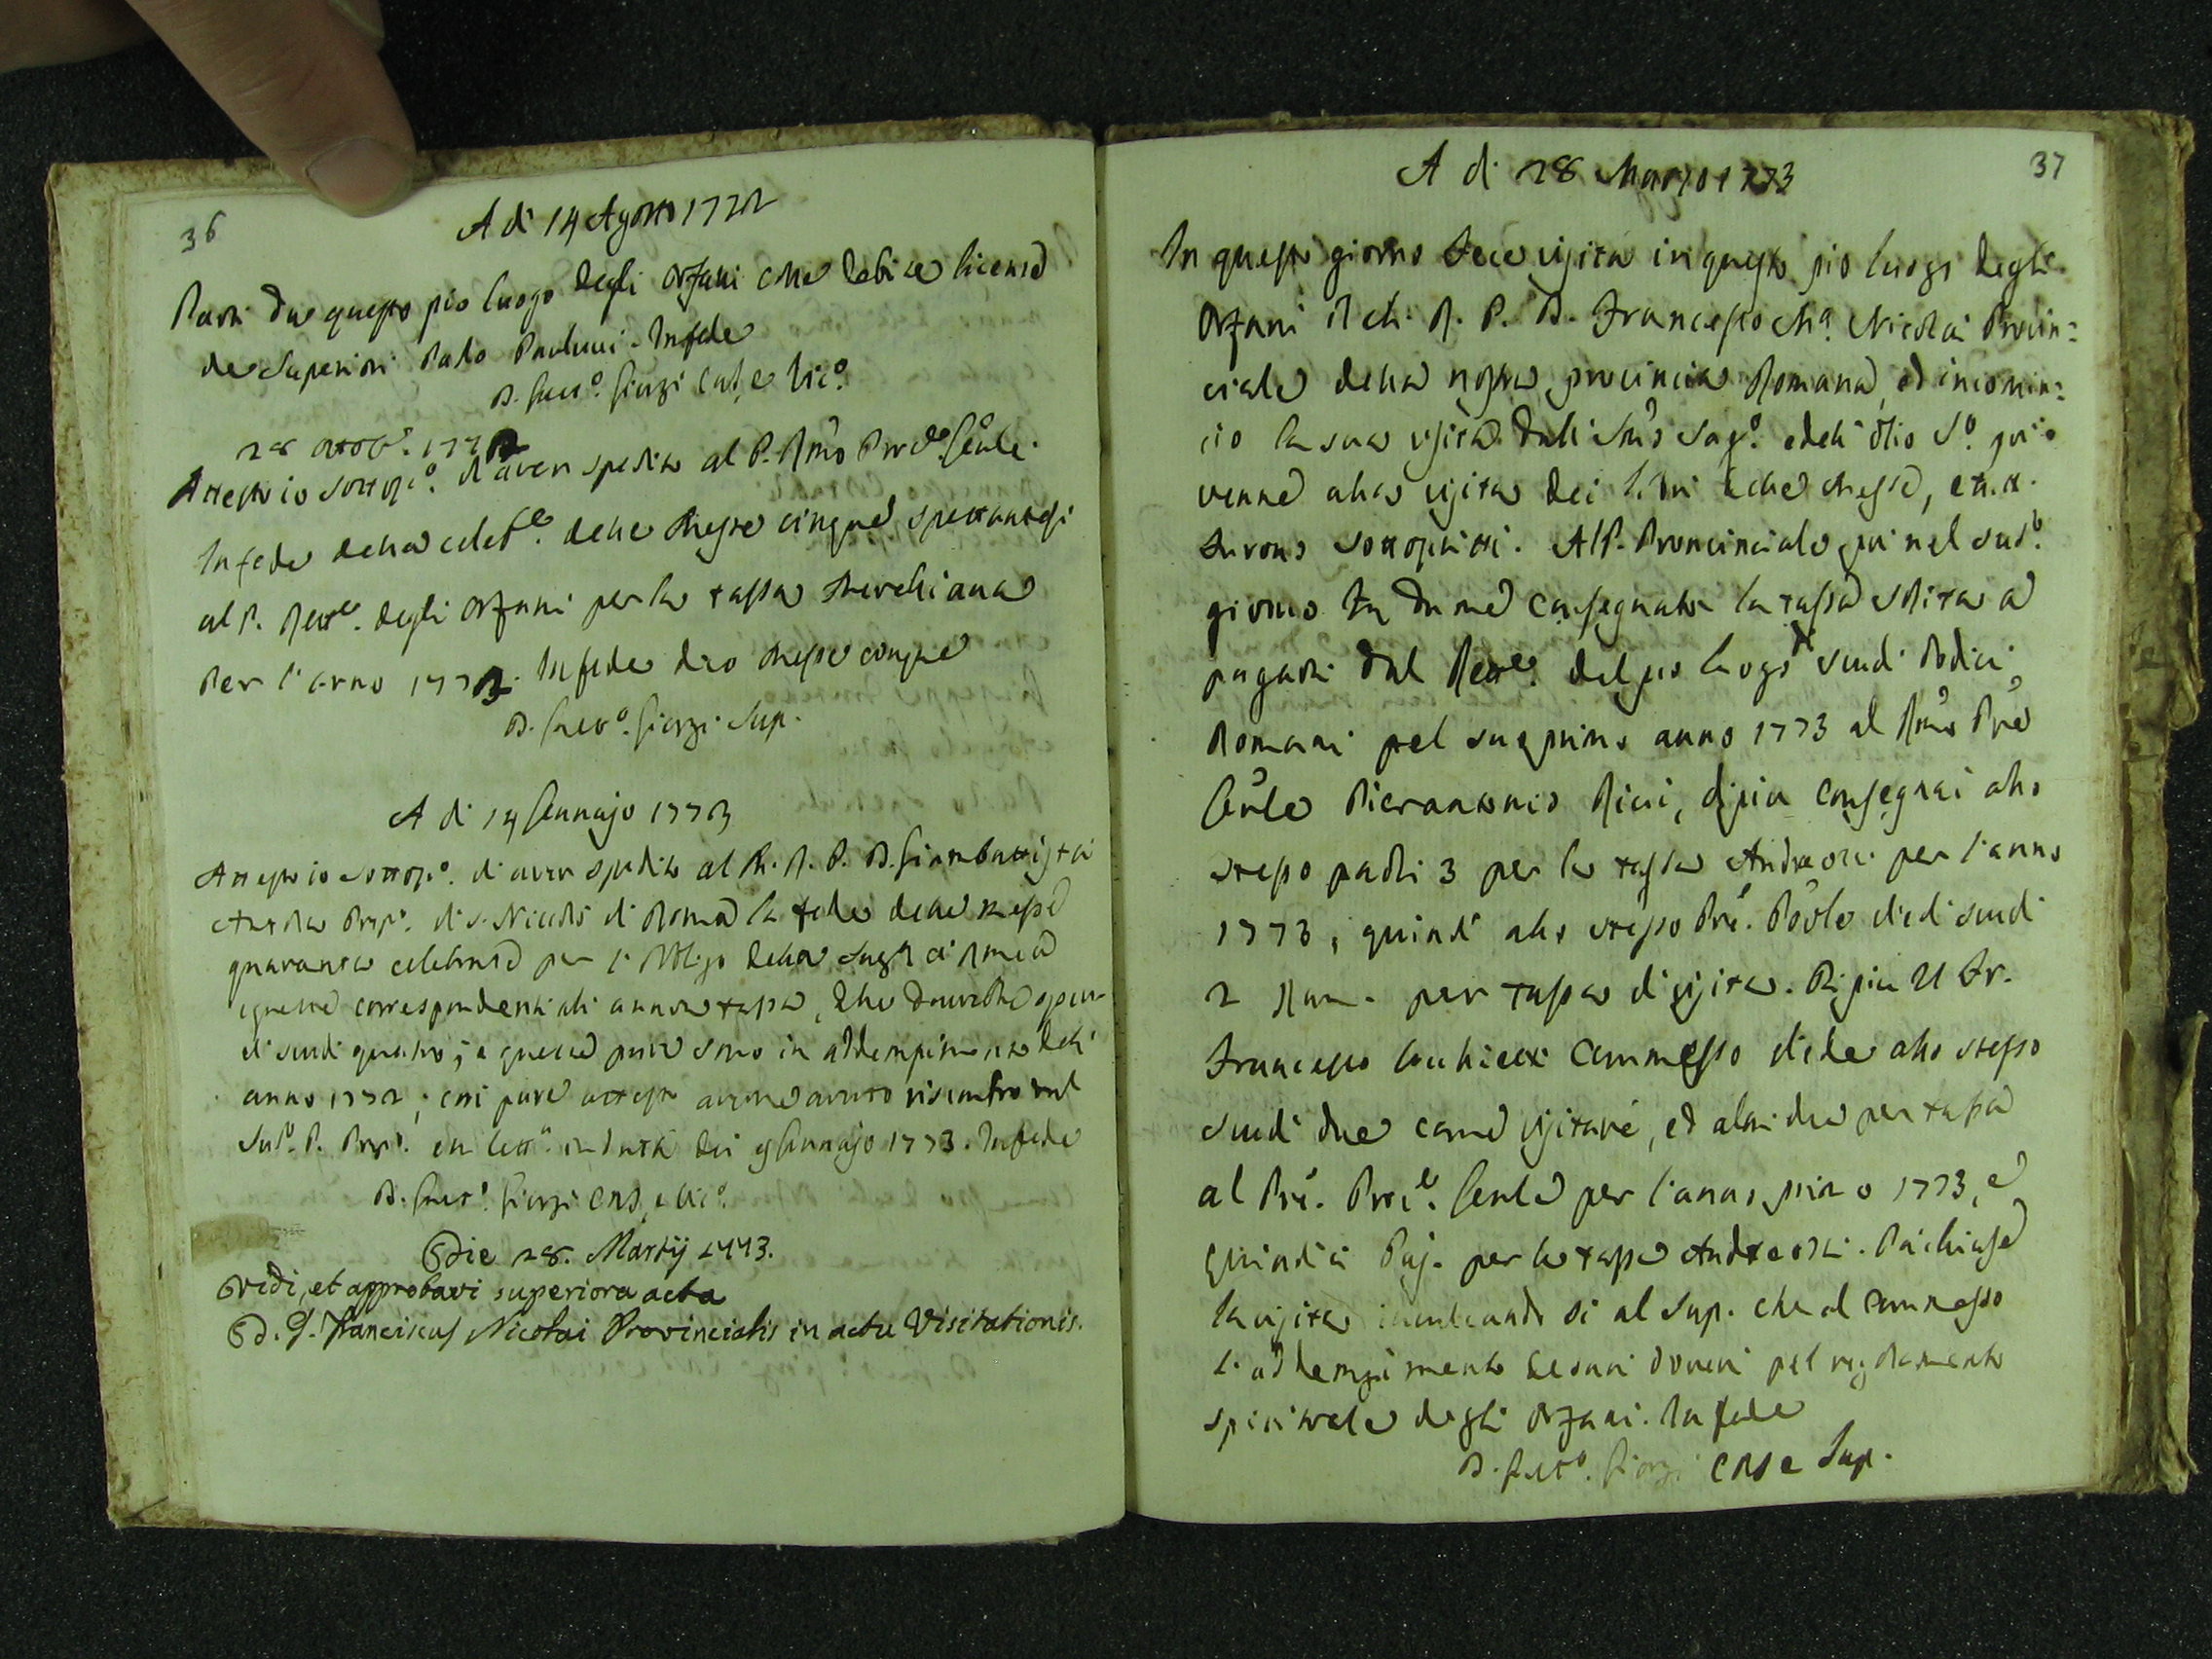 36
A di 14 Agosto 1772
Partì da questo pio luogo degli Orfani colle debite licenze
de Superiori Paolo Paolucci. In fede
D. Franc.º Giorgi C.R.S. e Vic.º
28 Ottob.e 1772
Attesto io sottos.º d'aver spedito al P. Rmo Proc.e Gen̄le
la fede della celeb.e delle Messe cinque spettantesi
al P. Rett.e degli Orfani per la tassa
Per l'anno 1772. In fede dico Messe cinque
D. Franc.º Giorgi Sup.
A di 14 Gennajo 1773
Attesto io sottos.º di aver spedito al M. R. P. D. Giambattista
Prep.º di S. Niccolò di Roma la fede delle messe
quaranta celebrate per l'obligo della
e queste corrispondenti all'annua tassa, che dovrebbe
di scudi quattro; e queste pure sono in addempimento dell'
anno 1772; così pure attesto averne avuto riscontro dal
Sud.º P. Prep.º in lett.a in data dei 9 Gennajo 1773. In fede
D. Franc.º Giorgi C.R.S. e Vic.º
Die 28. Martij 1773.
Vidi, et approbavi superiora acta
D. J. Franciscus Nicolai Provincialis in actu Visitationis.
37
A di 28 Marzo 1773
In questo giorno fece visita in questo pio luogo degli
Orfani il M. R. P. D. Francesco Ma Nicolai Provin:
ciale della nostra provincia Romana, ed incomin:
ciò la sua visita dall S̄mo Sag.º e dell'Olio S.º poi
venne alla visita dei libri delle Messe, et.
furono sottoscritti. Al P. Provinciale poi nel sud.º
giorno fu da me consegnata la tassa solita a
pagarsi dal Rett.e del pio luogo di scudi dodici
Romani pel suo primo anno 1773 al Rm̄o Pr̄e
Gen̄le Pierantonio Ricci, di più consegnai allo
stesso paoli 3 per la tassa per l'anno
1773, quindi allo stesso Prē. Prov̄le diedi scudi
2 Rom. per tassa di visita. Di più il Fr.
Francesco Commesso diede allo stesso
scudi due come visitare, ed altri due per tassa
al Prē. Proc.e Gen̄le per l'anno primo 1773, e
quindici Baj. per la tassa. Poi chiuse
la visita inculcando sì al Sup. che al Commesso
l'addempimento de suoi doveri pel regolamento
spirituale degli Orfani. In fede
D. Franc.º Giorgi C.R.S. e Sup.